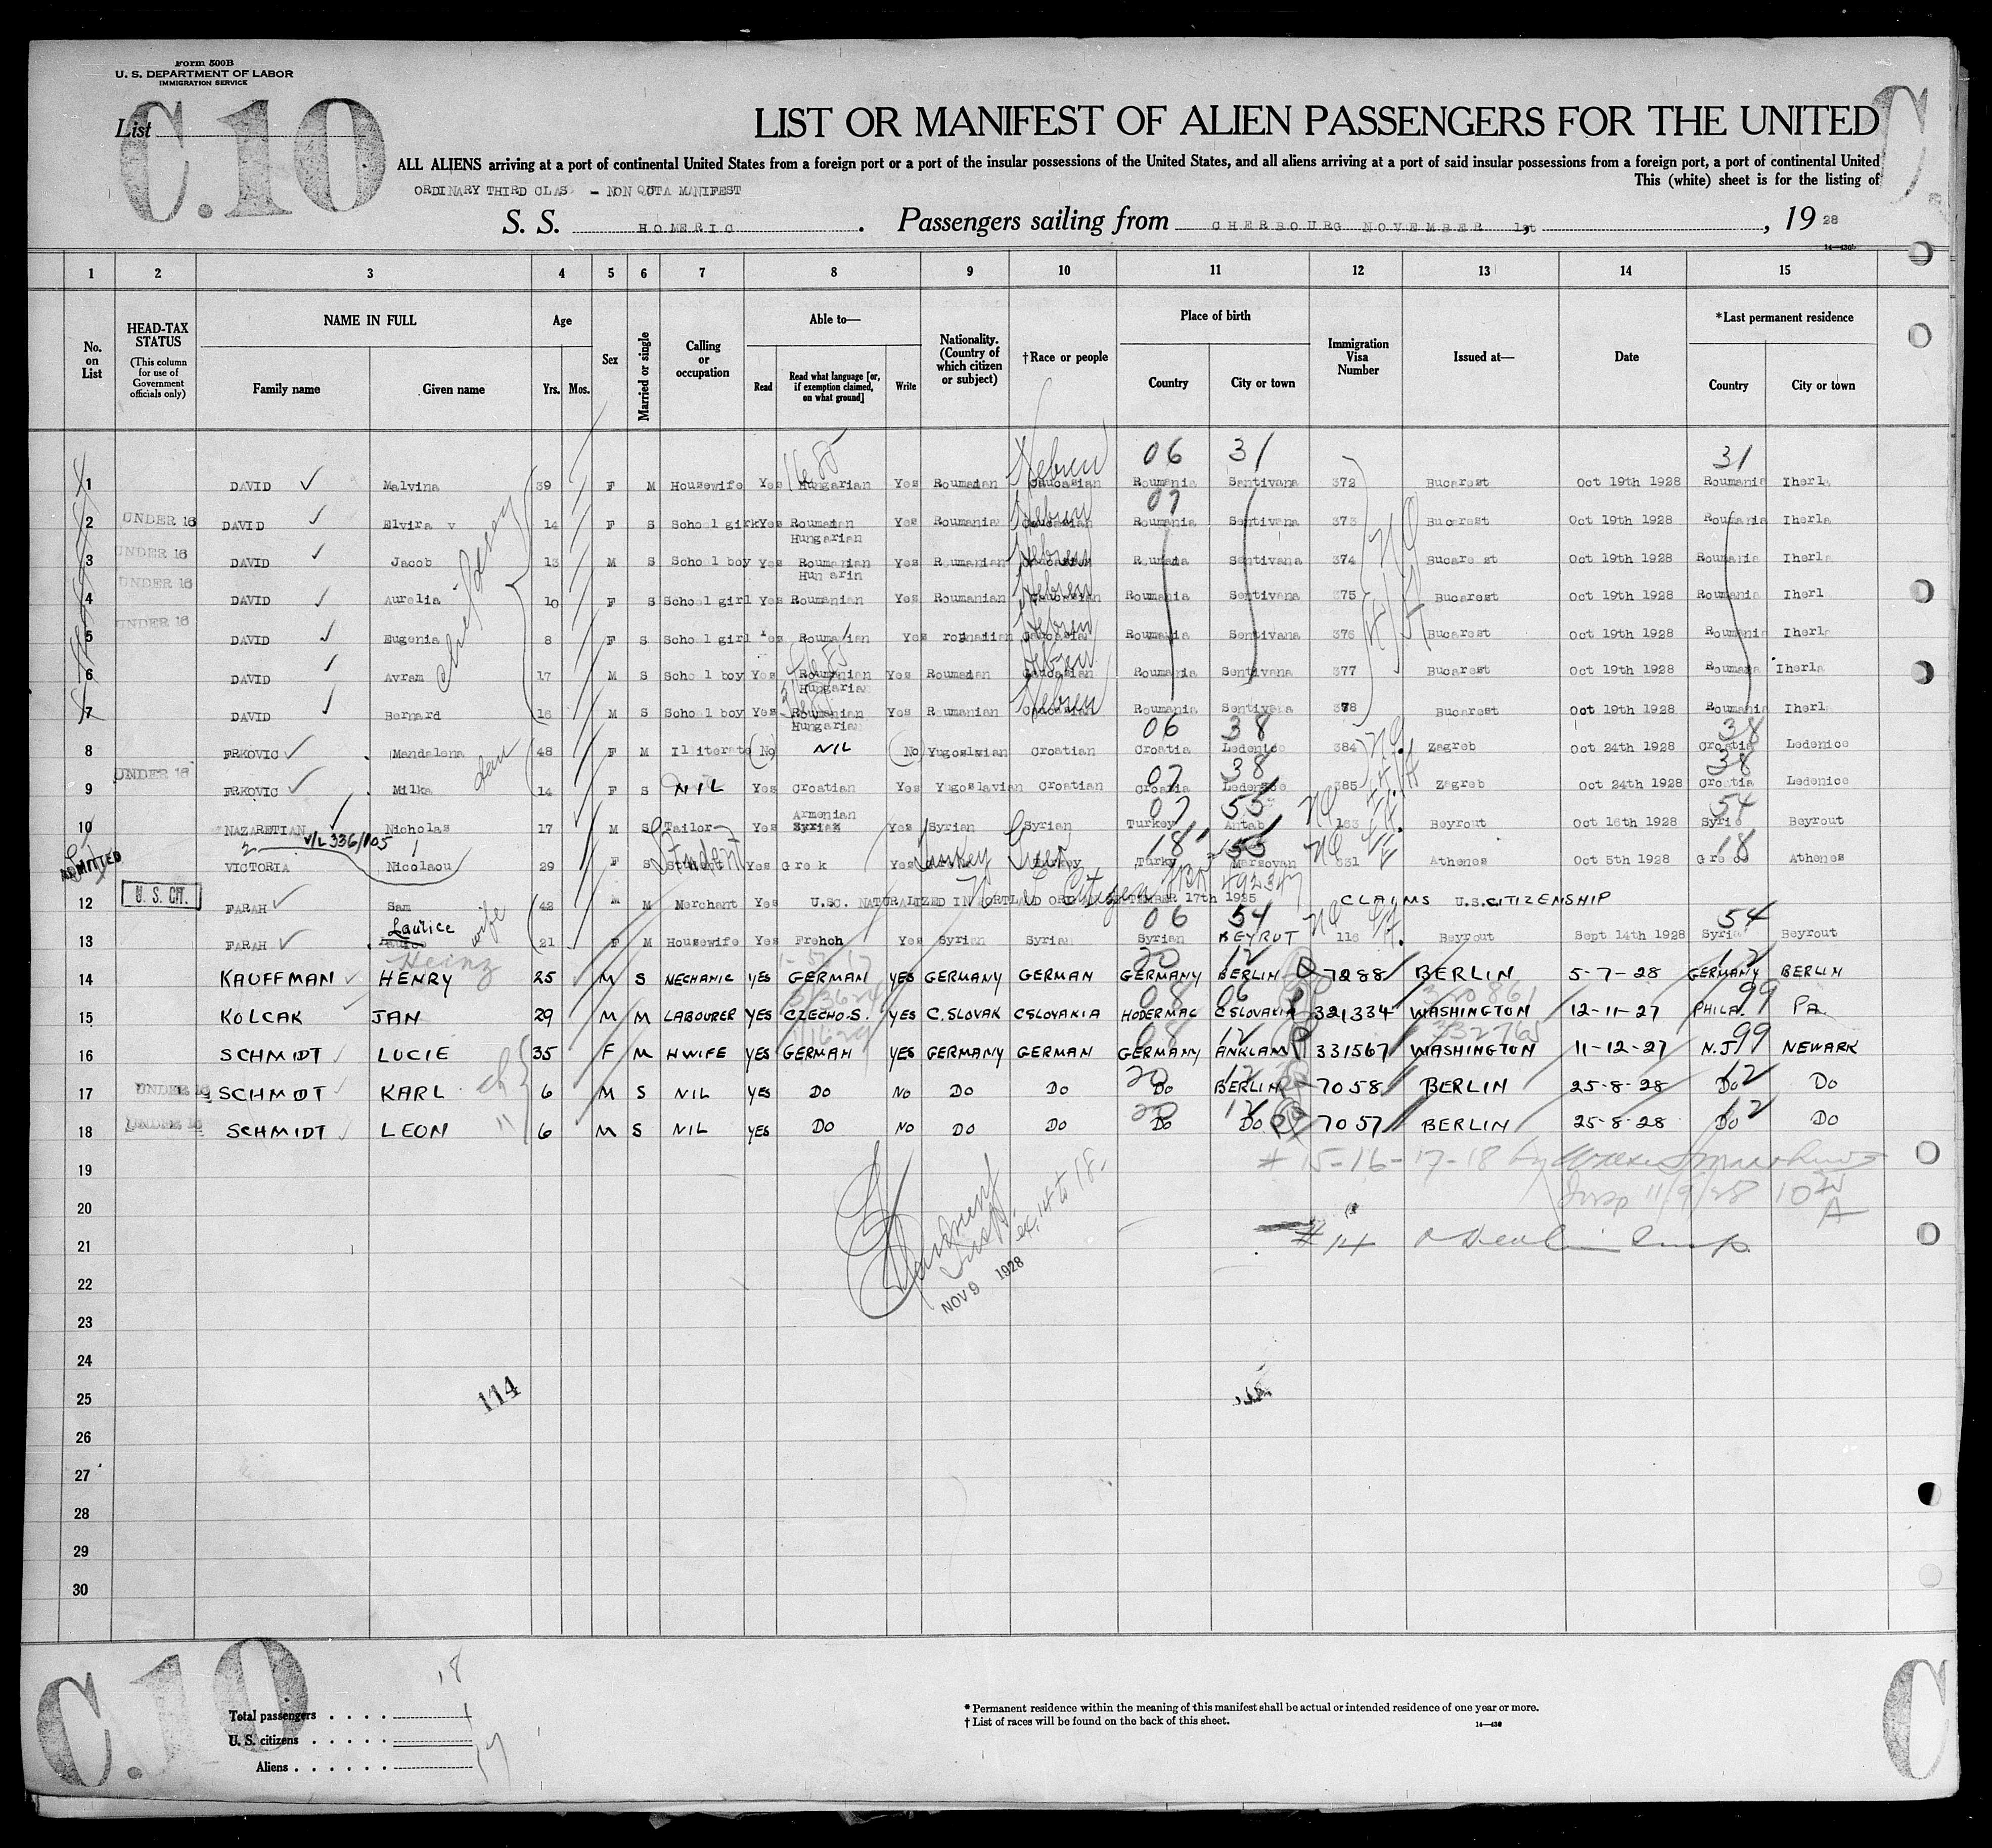 Form 500B
U. S. DEPARTMENT OF LABOR
IMMIGRATION SERVICE
C.10
List
LIST OR MANIFEST OF ALIEN PASSENGERS FOR THE UNITED
ALL ALIENS arriving at a port of continental United States from a foreign port or a port of the insular possessions of the United States, and all aliens arriving at a port of said insular possessions from a foreign port, a port of continental United
ORDINARY THIRD CLAS - NON QUTA MANIFEST
This (white) sheet is for the listing of
S. S. HOMERIC. Passengers sailing from CHERBOURG NOVEMBER 1st, 1928
1 2 3 4 5 6 7 8 9 10 11 12 13 14 15
No. on List HEAD-TAX STATUS (This column for use of Government officials only) NAME IN FULL Family name Given name Age Yrs. Mos. Sex Married or single Calling or occupation Able to— Read Read what language [or, if exemption claimed, on what ground] Write Nationality. (Country of which citizen or subject) †Race or people Place of birth Country City or town Immigration Visa Number Issued at— Date *Last permanent residence Country City or town
06 31 31
1 DAVID Malvina 39 F M Housewife Yes Hungarian Yes Roumanian Caucasian Hebrew Roumania Sentivana 372 Bucarest Oct 19th 1928 Roumania Iherla
07
2 UNDER 16 DAVID Elvira v 14 F S School girl Yes Roumanian Hungarian Yes Roumania Caucasian Hebrew Roumania Sentivana 373 Bucarest Oct 19th 1928 Roumania Iherla
3 UNDER 16 DAVID Jacob 13 M S School boy Yes Roumanian Hun arin Yes Roumanian Hebrew Roumania Sentivana 374 Bucarest Oct 19th 1928 Roumania Iherla
4 UNDER 16 DAVID Aurelia 10 F S School girl Yes Roumanian Yes Roumanian Caucasian Hebrew Roumania Sentivana 375 Bucarest Oct 19th 1928 Roumania Iherl
5 UNDER 16 DAVID Eugenia 8 F S School girl Yes Roumanian Yes Caucasian Hebrew Roumania Sentivana 376 Bucarest Oct 19th 1928 Roumania Iherla
6 DAVID Avram 17 M S School boy Yes Roumanian Hungarian Yes Roumanian Caucasian Hebrew Roumania Sentivana 377 Bucarest Oct 19th 1928 Roumana Iherla
7 DAVID Bernard 16 M S School boy Yes Roumanian Hungarian Yes Roumanian Caucasian Hebrew Roumania Sentivana 378 Bucarest Oct 19th 1928 Roumania Iherl
children
06 38 38
8 FRKOVIC Mandalena 48 F M Illiterate No NIL No Yugoslavian Croatian Croatia Ledenice 384 Zagreb Oct 24th 1928 Croatia Ledenice
07 38 38
9 UNDER 16 FRKOVIC Milka 14 F S NIL Yes Croatian Yes Yugoslavian Croatian Croatia Ledenice 385 Zagreb Oct 24th 1928 Croatia Ledenice
07 55 54
10 NAZARETIAN Nicholas 17 M S Tailor Yes Armenian Syrian Yes Syrian Syrian Turkey Antab 163 Beyrout Oct 16th 1928 Syria Beyrout
V/L 336/105
18 55 18
ADMITTED VICTORIA Nicolaou 29 F S Student Student Yes Greek Yes Turkey Greek Turky Marsovan 331 Athenes Oct 5th 1928 Greece Athenes
12 U. S. CIT. FARAH Sam 42 M M Merchant Yes U.SC. NATURALIZED IN PORTLAND SEPTEMBER 17th 1925 CLAIMS U.S.CITIZENSHIP
06 54 54
13 FARAH Laurice wife 21 F M Housewife Yes Frehch Yes Syrian Syrian Syrian BEYRUT 116 Beyrout Sept 14th 1928 Syria Beyrout
Heinz 20 12 12
14 KAUFFMAN HENRY 25 M S MECHANIC YES GERMAN YES GERMANY GERMAN GERMANY BERLIN 7288 BERLIN 5-7-28 GERMANY BERLIN
08 06 99
15 KOLCAK JAN 29 M M LABOURER YES CZECHO.S. YES C.SLOVAK CSLOVAKIA HODERMAC CSLOVAKIA 321334 WASHINGTON 12-11-27 PHILA. PA.
08 12 332765 99
16 SCHMIDT LUCIE 35 F M HWIFE YES GERMAN YES GERMANY GERMAN GERMANY ANKLAM 331567 WASHINGTON 11-12-27 N.J. NEWARK
20 12 12
17 UNDER 16 SCHMDT KARL ch 6 M S NIL YES DO NO DO DO DO BERLIN 7058 BERLIN 25-8-28 DO DO
20 12 12
18 UNDER 16 SCHMIDT LEON " 6 M S NIL YES DO NO DO DO DO DO 7057 BERLIN 25-8-28 DO DO
19 # 15-16-17-18 by
20 Insp 11/9/28
21 # 14
Insp. ex 14 to 18.
NOV 9 1928
22
23
24
25
114
26
27
28
29
30
C.10
18
Total passengers
U. S. citizens 1
Aliens 17
* Permanent residence within the meaning of this manifest shall be actual or intended residence of one year or more.
† List of races will be found on the back of this sheet.
14—430
C